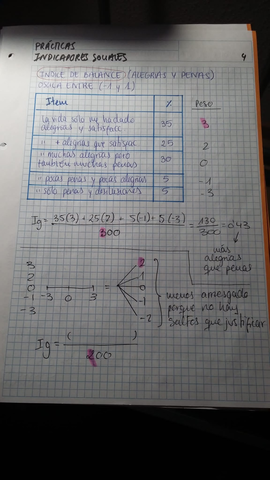 PRÁCTICAS
INDICADORES SOCIALES 4
ÍNDICE DE BALANCE (ALEGRÍAS Y PENAS)
OSCILA ENTRE (-1 y 1)
Item % Peso
la vida solo me ha dado alegrías y satisfacc 35 3
" + alegrías que satisfacc 25 2
" muchas alegrías pero también muchas penas 30 0
" pocas penas y pocas alegrías 5 -1
" solo penas y desilusiones 5 -3
Ig = 35(3) + 25(2) + 5(-1) + 5(-3) / 300 = 130 / 300 = 0'43
más
alegrías
que penas
3
2
0
-1
-3
-3 0 3
=
2
1
0
-1
-2
menos arriesgado
porque no hay
saltos que justificar
Ig = ( ) / 200